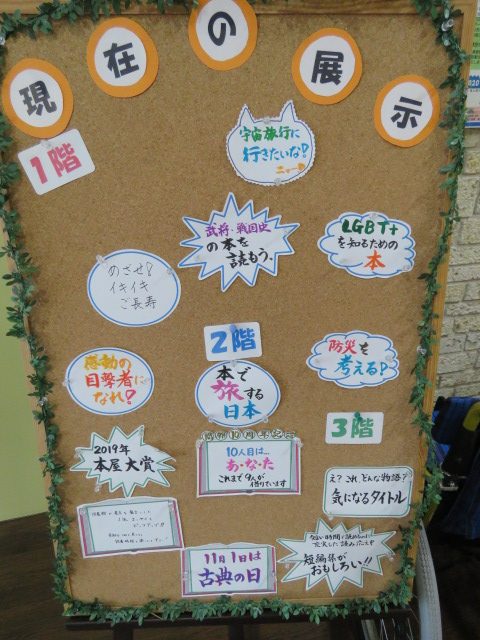 現在の展示
1階
宇宙旅行に
行きたいな!
武将・戦国史
の本を
読もう、
LGBT+
を知るための
本
めざせ!
イキイキ
ご長寿
2階
感動の
目撃者に
なれ!
本で
旅する
日本
防災を
考える?
3階
2019年
本屋大賞
10人目は…
あ・な・た
これまで9人が
借りています
え?これ、どんな物語?
気になるタイトル
11月1日は
古典の日
短編集が
おもしろい!!